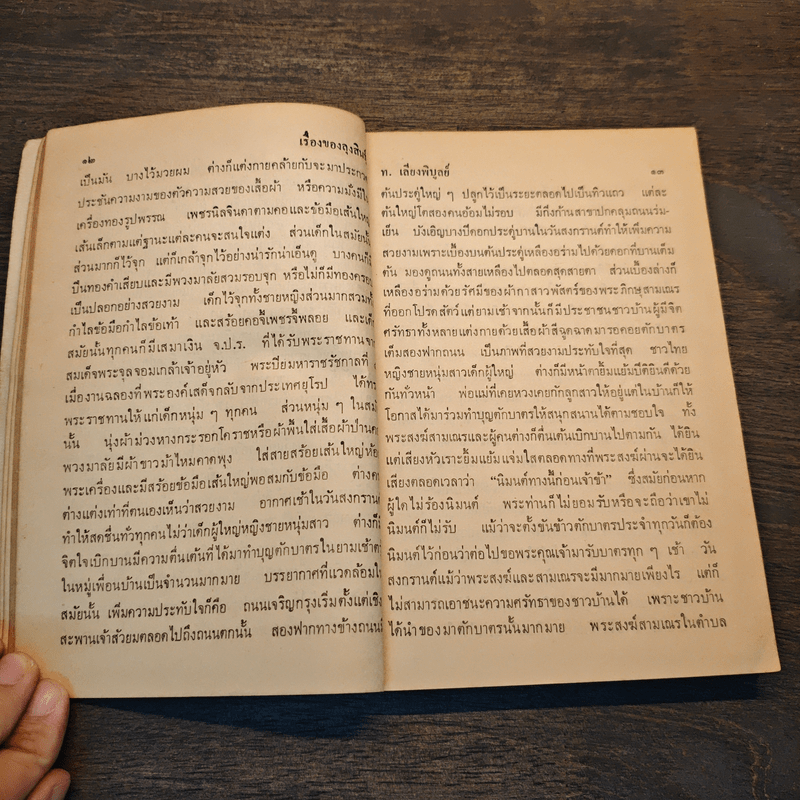 ๑๒
เรื่องของลุงสิน
เป็นมัน บางไว้มวยผม ต่างก็แต่งกายคล้ายกับจะมาประกวด
ประชันความงามของตัวความสวยของเสื้อผ้า หรือความมั่งมี
เครื่องทองรูปพรรณ เพชรนิลจินดาตามคอและข้อมือเส้นใหญ่
เส้นเล็กตามแต่ฐานะแต่ละคนจะสนใจแต่ง ส่วนเด็กในสมัยนั้น
ส่วนมากก็ไว้จุก แต่ก็เกล้าจุกไว้อย่างน่ารักน่าเอ็นดู บางคนก็
ปืนทองคำเสียบและมีพวงมาลัยสวมรอบจุก หรือไม่ก็มีทองครอบ
เป็นปลอกอย่างสวยงาม เด็กไว้จุกทั้งชายหญิงส่วนมากสวม
กำไลข้อมือกำไลข้อเท้า และสร้อยคอจี้เพชรจี้พลอย และเด็ก
สมัยนั้นทุกคนก็มีเสมาเงิน จ.ป.ร. ที่ได้รับพระราชทานจาก
สมเด็จพระจุลจอมเกล้าเจ้าอยู่หัว พระปิยมหาราชรัชกาลที่
เมื่องานฉลองที่พระองค์เสด็จกลับจากประเทศยุโรป ได้ทรง
พระราชทานให้แก่เด็กหนุ่ม ๆ ทุกคน ส่วนหนุ่ม ๆ ในสมัย
นั้น นุ่งผ้าม่วงหางกระรอกโคราชหรือผ้าพื้นใส่เสื้อผ้าป่าน
พวงมาลัยมีผ้าขาวม้าไหมคาดพุง ใส่สายสร้อยเส้นใหญ่ห้อย
พระเครื่องและมีสร้อยข้อมือเส้นใหญ่พอสมกับข้อมือ ต่างคน
ต่างแต่งเท่าที่ตนเองเห็นว่าสวยงาม อากาศเช้าในวันสงกรานต์
ทำให้สดชื่นทั่วทุกคนไม่ว่าเด็กผู้ใหญ่หญิงชายหนุ่มสาว ต่างก็มี
จิตใจเบิกบานมีความตื่นเต้นที่ได้มาทำบุญตักบาตรในยามเช้าตรู่
ในหมู่เพื่อนบ้านเป็นจำนวนมากมาย บรรยากาศที่แวดล้อมใน
สมัยนั้น เพิ่มความประทับใจก็คือ ถนนเจริญกรุงเริ่มตั้งแต่เชิง
สะพานเจ้าสัวยมตลอดไปถึงถนนตกนั้น สองฟากทางข้างถนน
ท. เลียงพิบูลย์
๑๓
ต้นประดู่ใหญ่ ๆ ปลูกไว้เป็นระยะตลอดไปเป็นทิวแถว แต่ละ
ต้นใหญ่โตสองคนอ้อมไม่รอบ มีกิ่งก้านสาขาปกคลุมถนนร่ม-
เย็น บังเอิญบางปีดอกประดู่บานในวันสงกรานต์ทำให้เพิ่มความ
สวยงามเพราะเบื้องบนต้นประดู่เหลืองอร่ามไปด้วยดอกที่บานเต็ม
ต้น มองดูถนนทั้งสายเหลืองไปตลอดสุดสายตา ส่วนเบื้องล่างก็
เหลืองอร่ามด้วยรัศมีของผ้ากาสาวพัสตร์ของพระภิกษุสามเณร
ที่ออกโปรดสัตว์แต่ยามเช้าจากนั้นก็มีประชาชนชาวบ้านผู้มีจิต
ศรัทธาทั้งหลายแต่งกายด้วยเสื้อผ้าสีฉูดฉาดมารอคอยตักบาตร
เต็มสองฟากถนน เป็นภาพที่สวยงามประทับใจที่สุด ชาวไทย
หญิงชายหนุ่มสาวเด็กผู้ใหญ่ ต่างก็มีหน้าตายิ้มแย้มปีติยินดีด้วย
กันทั่วหน้า พ่อแม่ที่เคยหวงเคยกักลูกสาวให้อยู่แต่ในบ้านก็ให้
โอกาสได้มาร่วมทำบุญตักบาตรให้สนุกสนานได้ตามชอบใจ ทั้ง
พระสงฆ์สามเณรและผู้คนต่างก็ตื่นเต้นเบิกบานไปตามกัน ได้ยิน
แต่เสียงหัวเราะยิ้มแย้มแจ่มใสตลอดทางที่พระสงฆ์ผ่านจะได้ยิน
เสียงตลอดเวลาว่า "นิมนต์ทางนี้ก่อนเจ้าข้า" ซึ่งสมัยก่อนหาก
ผู้ใดไม่ร้องนิมนต์ พระท่านก็ไม่ยอมรับหรือจะถือว่าเขาไม่
นิมนต์ก็ไม่รับ แม้ว่าจะตั้งขันข้าวตักบาตรประจำทุกวันก็ต้อง
นิมนต์ไว้ก่อนว่าต่อไปขอพระคุณเจ้ามารับบาตรทุก ๆ เช้า วัน
สงกรานต์แม้ว่าพระสงฆ์และสามเณรจะมีมากมายเพียงไร แต่ก็
ไม่สามารถเอาชนะความศรัทธาของชาวบ้านได้ เพราะชาวบ้าน
ได้นำของมาตักบาตรนั้นมากมาย พระสงฆ์สามเณรในตำบล